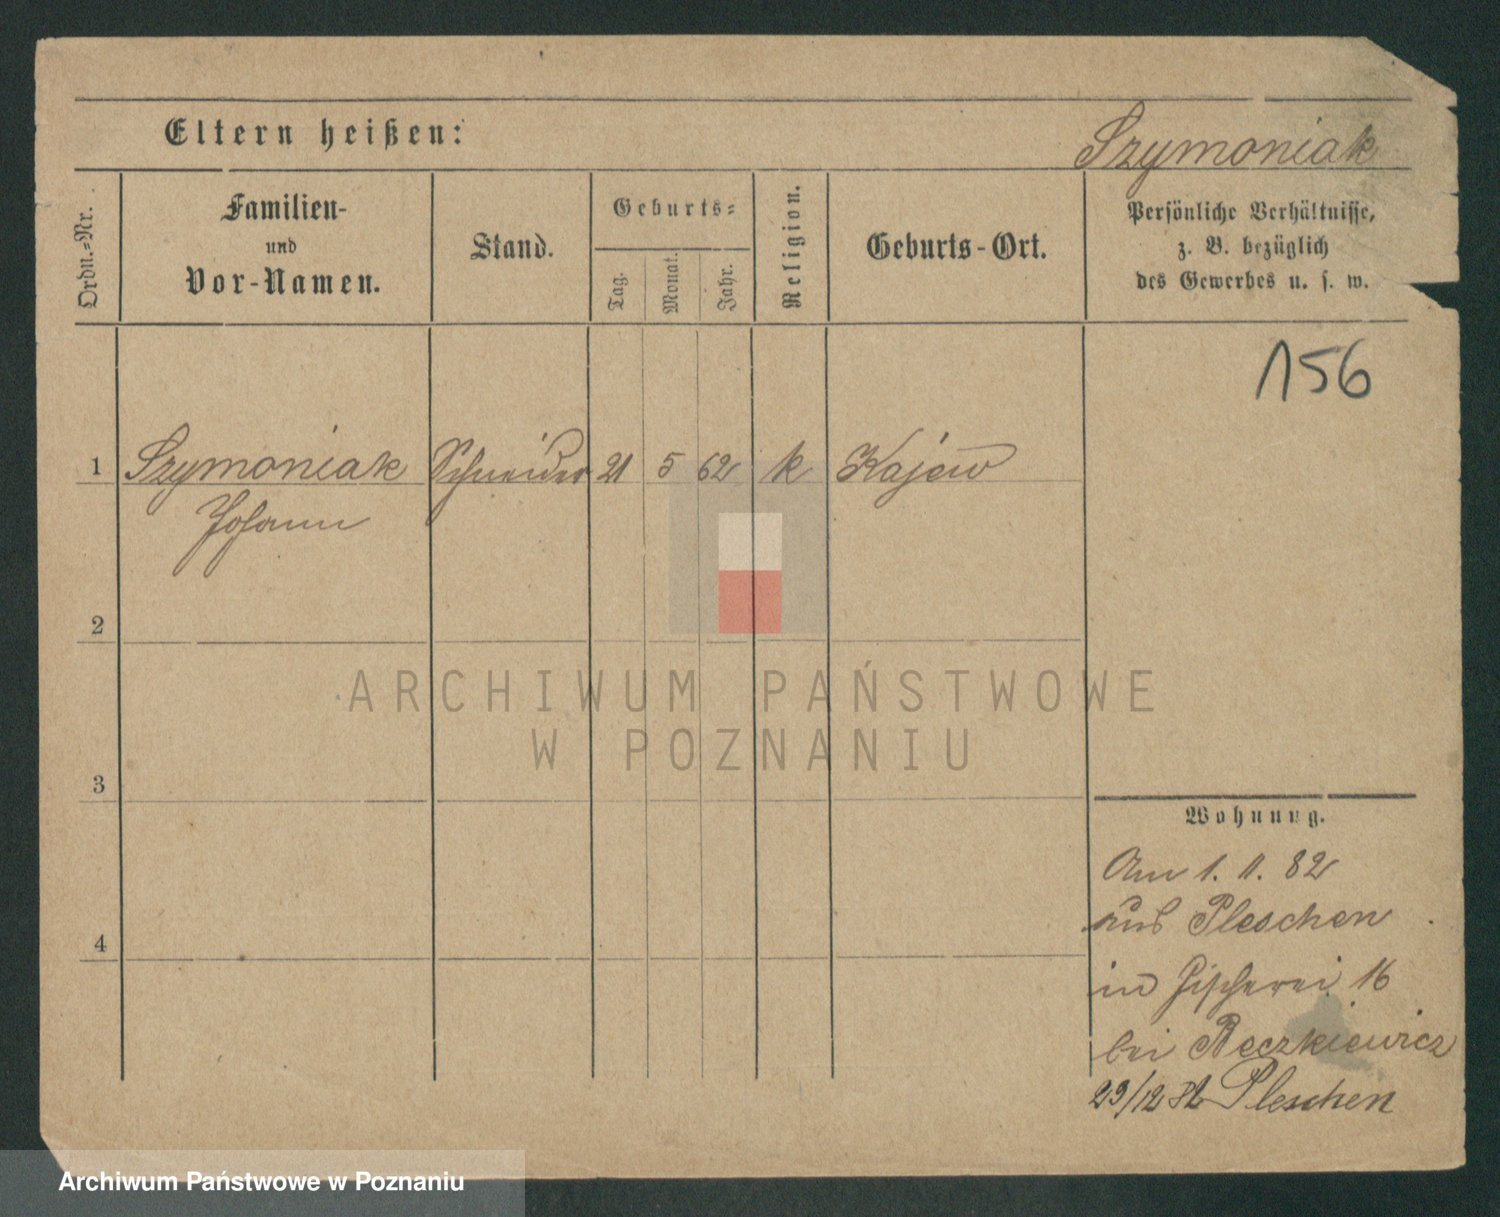 Eltern heißen:
Szymoniak
Ordn.=Nr.
Familien-
und
Vor-Namen.
Stand.
Geburts=
Tag.
Monat.
Jahr.
Religion.
Geburts-Ort.
Persönliche Verhältnisse,
z. B. bezüglich
des Gewerbes u. s. w.
156
1 Szymoniak Schneider 21 5 62 k Kajew
Johann
2
3
4
ARCHIWUM PAŃSTWOWE
W POZNANIU
Wohnung.
Am 1. 11. 82
aus Pleschen
in Fischerei 16
bei Reczkiewicz
29/12 82 Pleschen
Archiwum Państwowe w Poznaniu